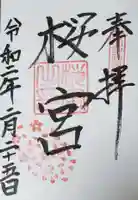 奉拝
桜宮
令和二年二月二十五日